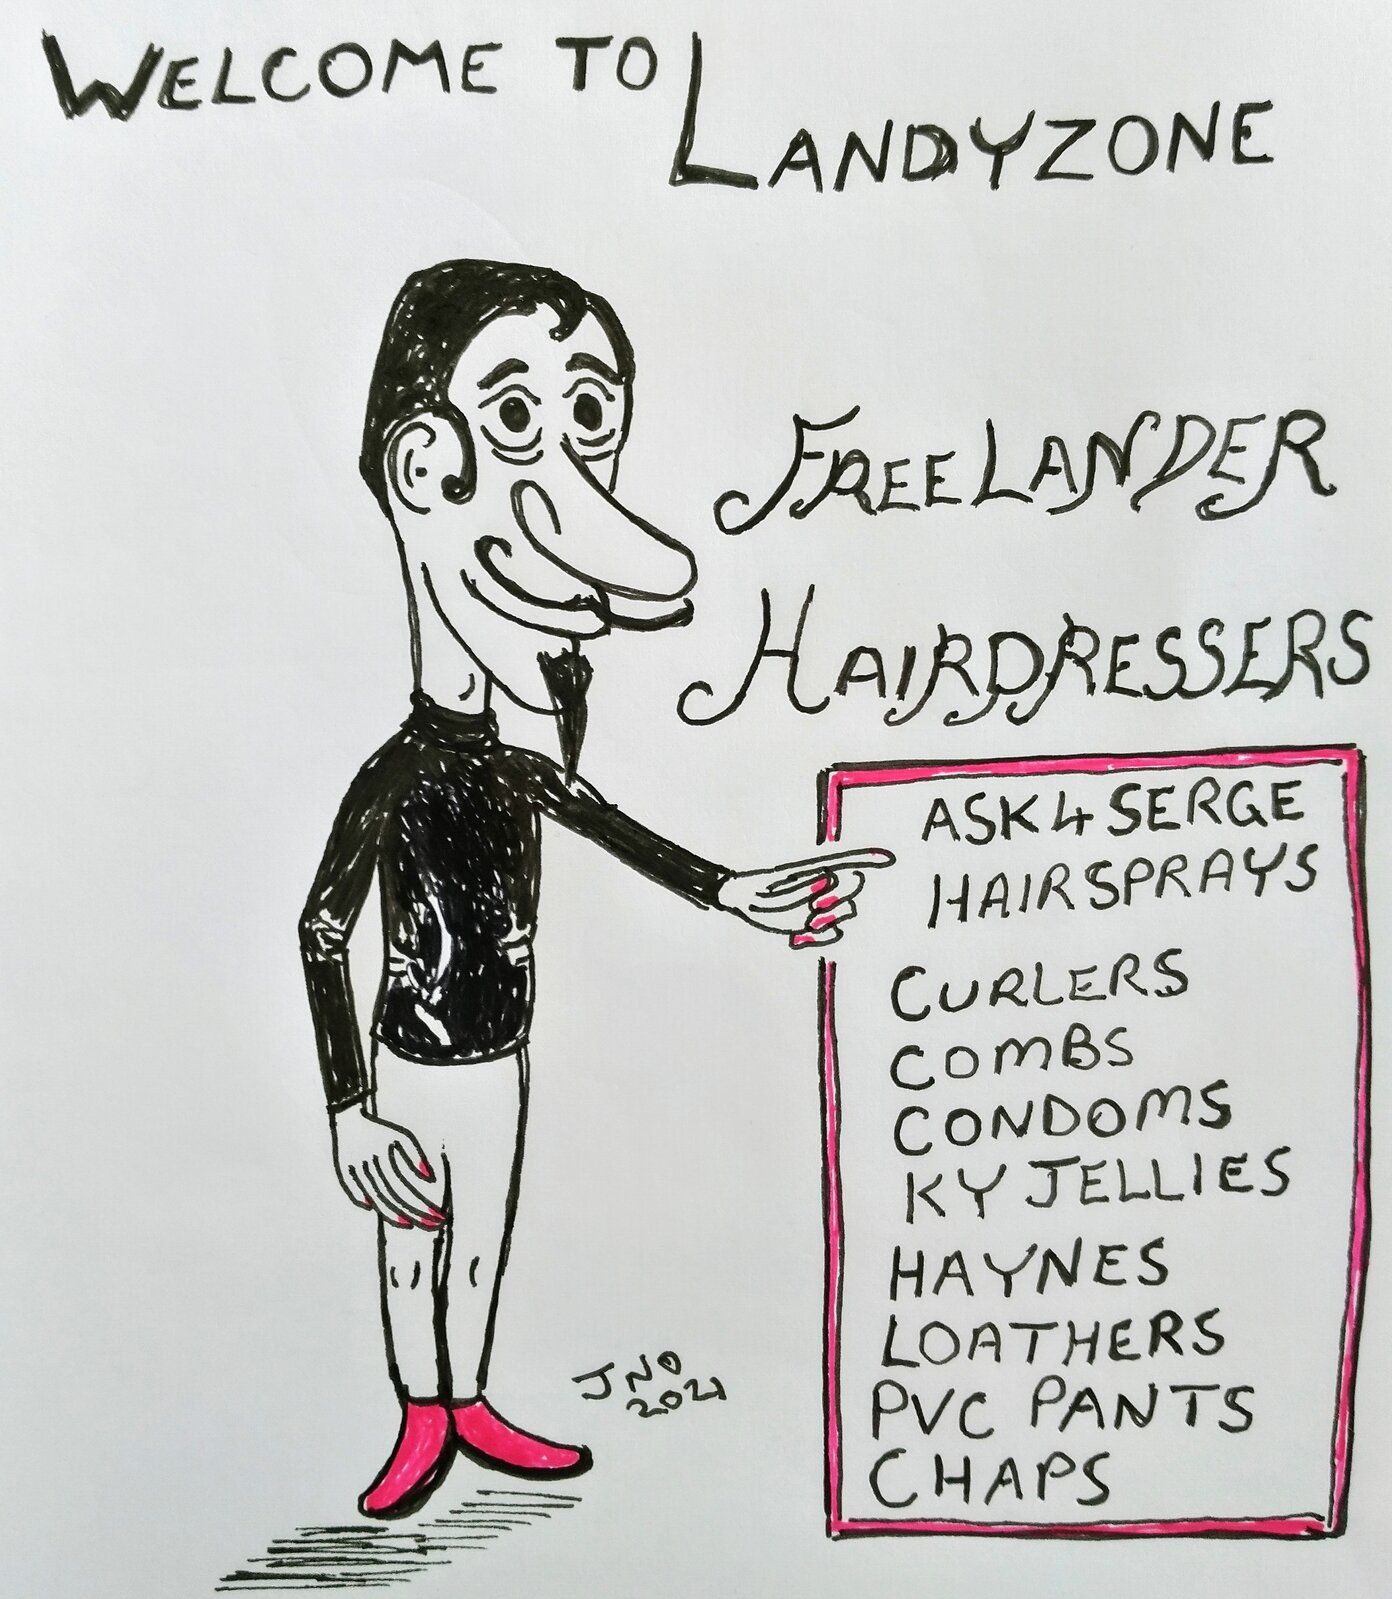 WELCOME TO LANDYZONE
FREELANDER
HAIRDRESSERS
ASK 4 SERGE
HAIRSPRAYS
CURLERS
COMBS
CONDOMS
KY JELLIES
HAYNES
LOATHERS
PVC PANTS
CHAPS
JNO
2021